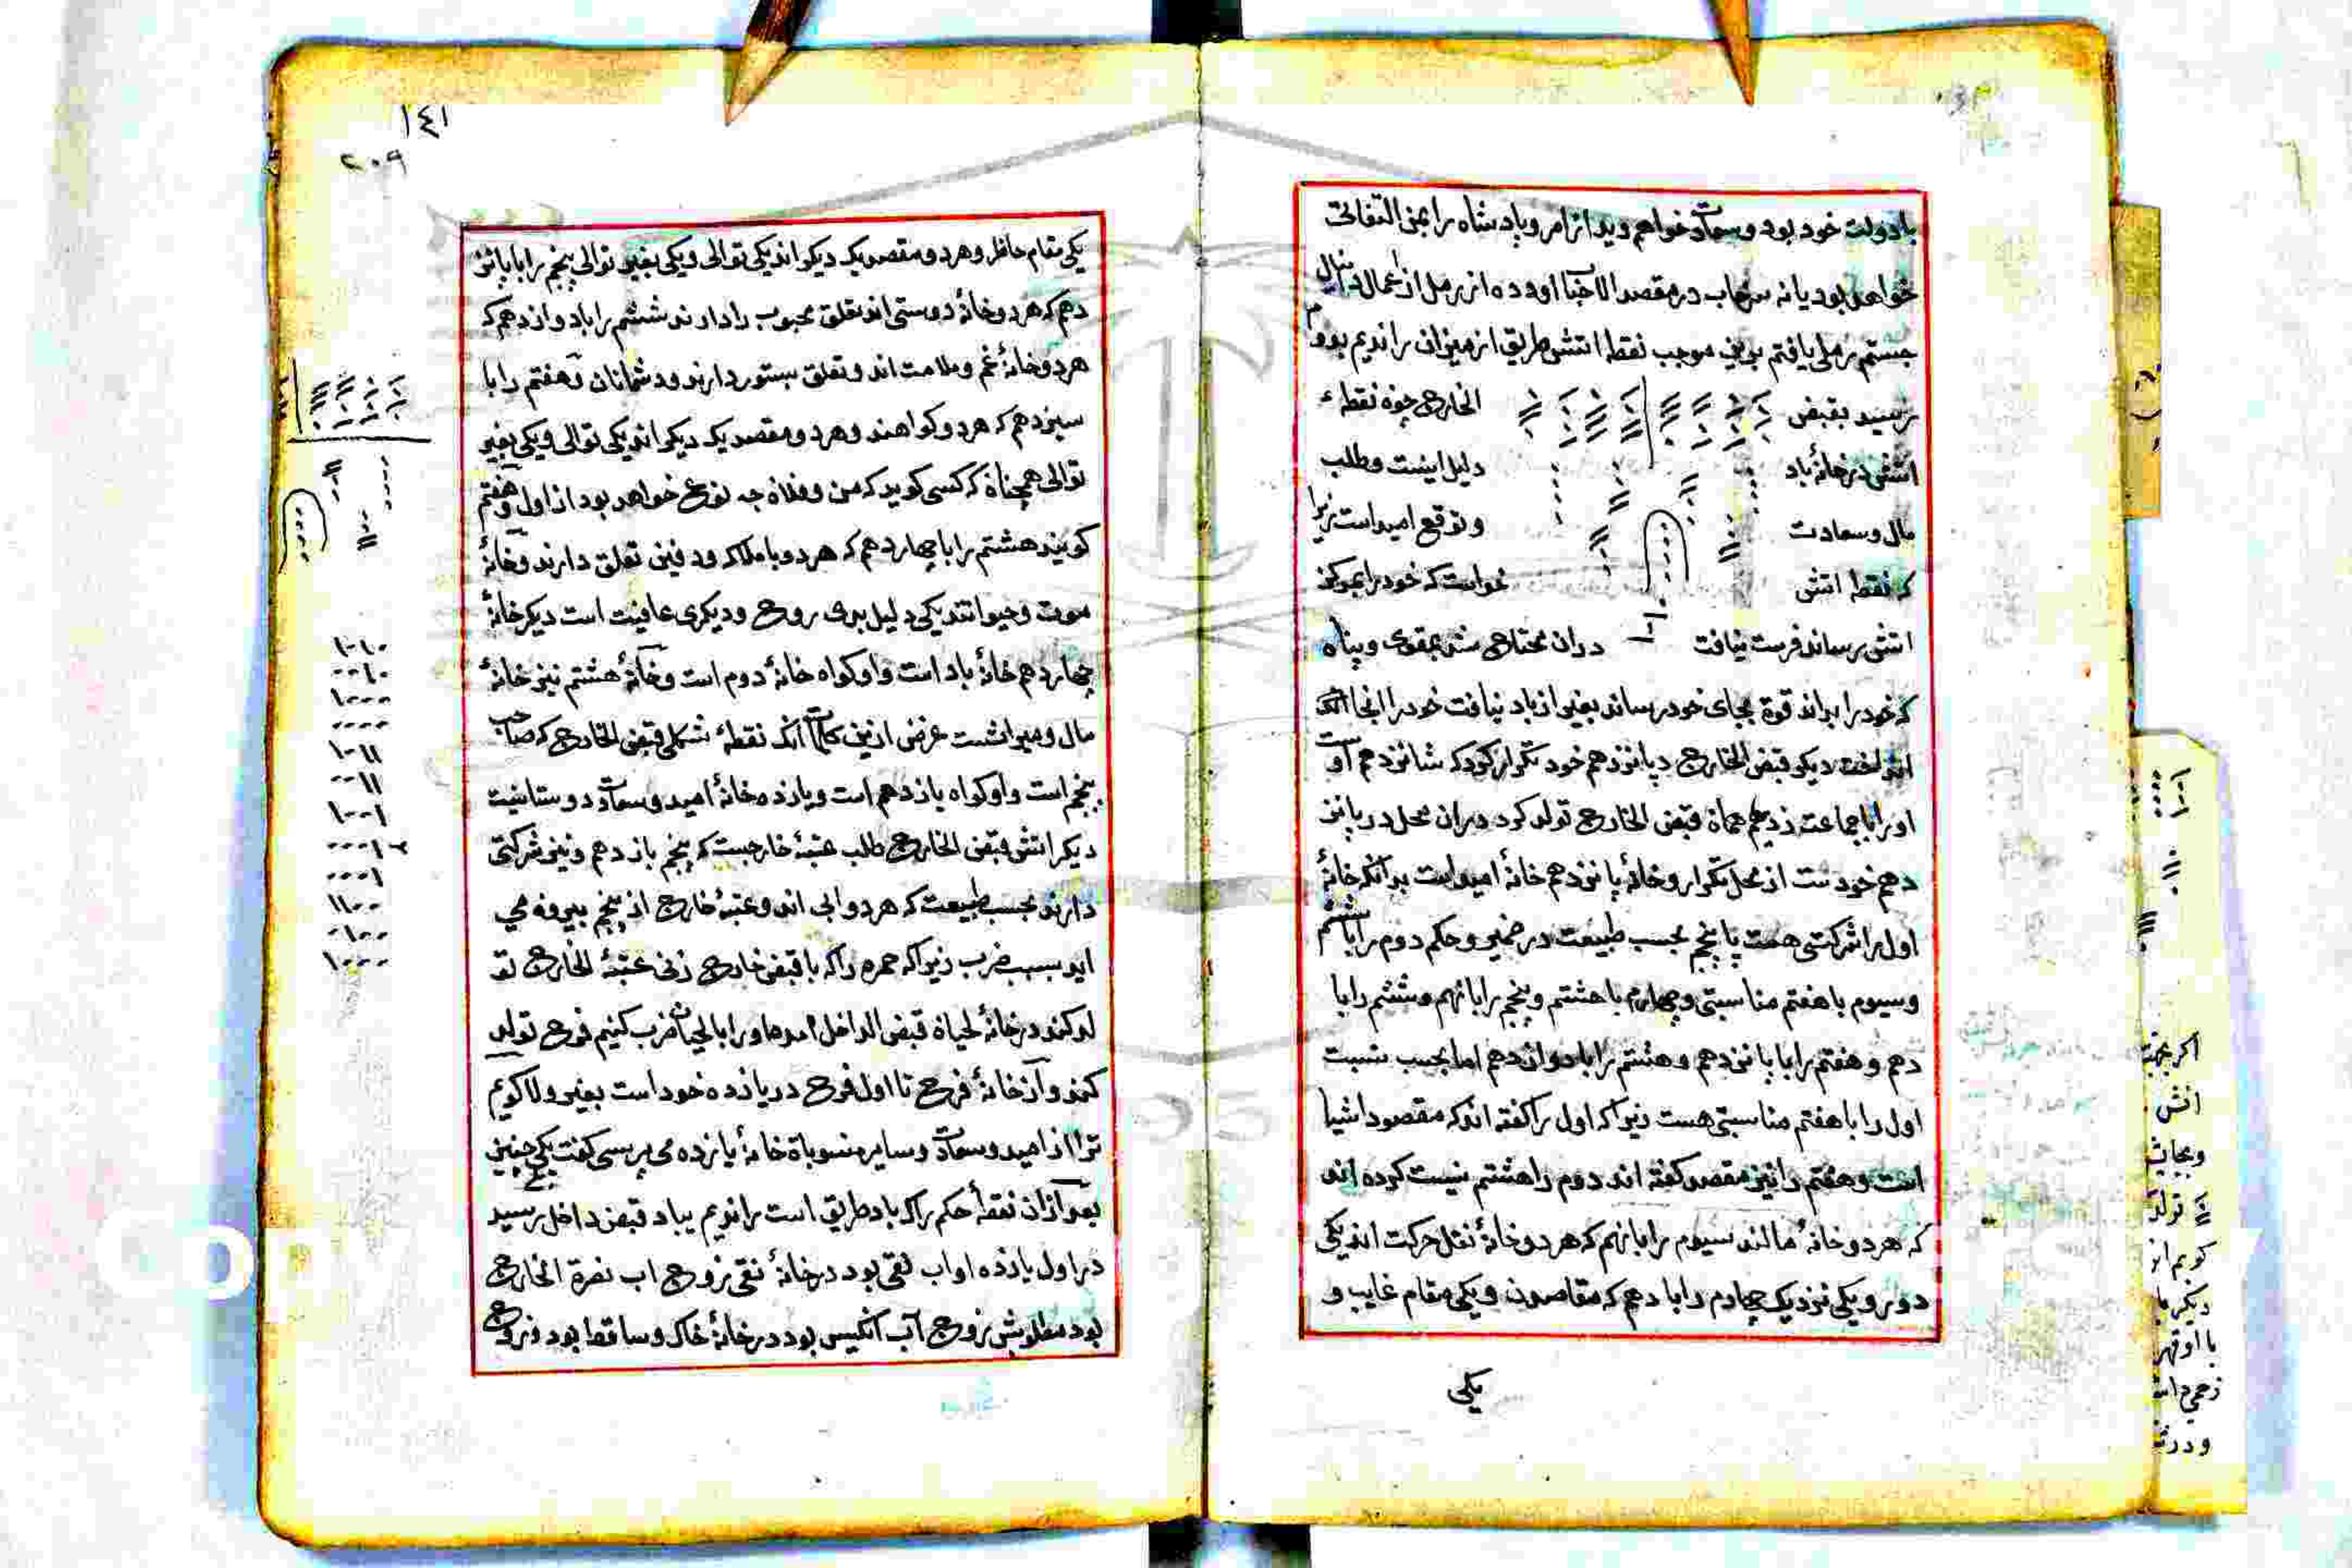 با دولت خود بود و سعادت خواهم دید از امر و پادشاه را بمن التفاتی
خواهد بود یا نه سرخاب در مقصد الاحباب آورده از رمل از اعمال دانیال
جستم رملی یافتم برین موجب نقطه اتش طریق از میزان راندیم بدوم
رسید بقبض الخارج چون نقطهء
اتشی در خانهٔ باد دلیل اینست و طلب
مال و سعادت و توقع امید است زیرا
که نقطه اتشی خواست که خود را بمرکز
اتشی رساند فرصت نیافت دران محتاج شد بمقوی و پناه
که خود را بداند قوة بجای خود رساند بغیر از باد نیافت خود را انجا
انداخت دیکر قبض الخارج در پانزدهم خود تکرار کرد که شانزدهم اوست
او را با جماعت زدیم همان قبض الخارج تولد کرد دران محل در پانز
دهم خودست از محل تکرار و خانهٔ پانزدهم خانهٔ امید است بدانکه خانهٔ
اول را شرکتی هست با پنجم بحسب طبیعت در ضمیر و حکم دوم را باششم
و سیوم با هفتم مناسبتی و چهارم با هشتم و پنجم را با نهم و ششم را با
دهم و هفتم را با پانزدهم و هشتم را با دوازدهم اما بحسب نسبت
اول را با هفتم مناسبتی هست زیرا که اول را کفته اند که مقصود اشیا
است و هفتم را نیز مقصد کفته اند دوم را هشتم نسبت کرده اند
که هر دو خانهٔ مالند سیوم را با نهم که هر دو خانهٔ نقل حرکت اند یکی
دور و یکی نزدیک چهارم را با دهم که مقاصدن و یکی مقام غایب و
یکی
١٤١
٢٠٩
یکی مقام حاظر و هر دو مقصد یک دیکر اند یکی توالی و یکی بغیر توالی پنجم را با پانز
دهم که هر دو خانهٔ دوستی اند تعلق محبوب را دارند ششم را با دوازدهم که
هر دو خانهٔ غم و ملامت اند و تعلق بستور دارند و دشمانان و هفتم را با
سیزدهم که هر دو کواهند و هر دو مقصد یک دیکر اند یکی توالی و یکی بغیر
توالی همچنان که کسی کوید که من و فلان چه نوع خواهد بود از اول و هفتم
کویند هشتم را با چهاردهم که هر دو با ملاک و دفین تعلق دارند و خانهٔ
موت و حیواتند یکی دلیل بدی روح و دیکری عافیت است دیکر خانهٔ
چهاردهم خانهٔ باد است و او کواه خانهٔ دوم است و خانهٔ هشتم نیز خانهٔ
مال و میراثست غرض ازین کلمات انکه نقطهٔ شکلی قبض الخارج که صاحب
پنجم است و او کواه یازدهم است و یازده خانهٔ امید و سعادت دوستانیت
دیکر اتش قبض الخارج طلب عتبهٔ خارجست که پنجم یازدهم و نیز شرکتی
دارند بحسب طبیعت که هر دو ابی اند و عتبهٔ خارج از پنجم بیرون می
اید بسبب ضرب زیرا که حمره را که با قبض خارج زنی عتبهٔ الخارج تو
لد کند در خانهٔ لحیان قبض الداخل امدها و را با لحیان ضرب کنیم فرح تولد
کند و از خانهٔ فرح تا اول فرح در یازده خود است بغیر ولا کویم
ترا از امید و سعادت و سایر منسوبات خانهٔ یازده می پرسی کفت یکی چنین
بعد ازان نقطهٔ حکم را که باد طریق است راندیم بباد قبض داخل رسید
در اول یازده او اب نقی بود در خانهٔ نقی زوج اب نصرة الخارج
بود مطلوبش زوج آب انکیس بود در خانهٔ خاک و ساقط بود و زوج
اکر بجهت
اتش
تولد
کویم از
دیکر با